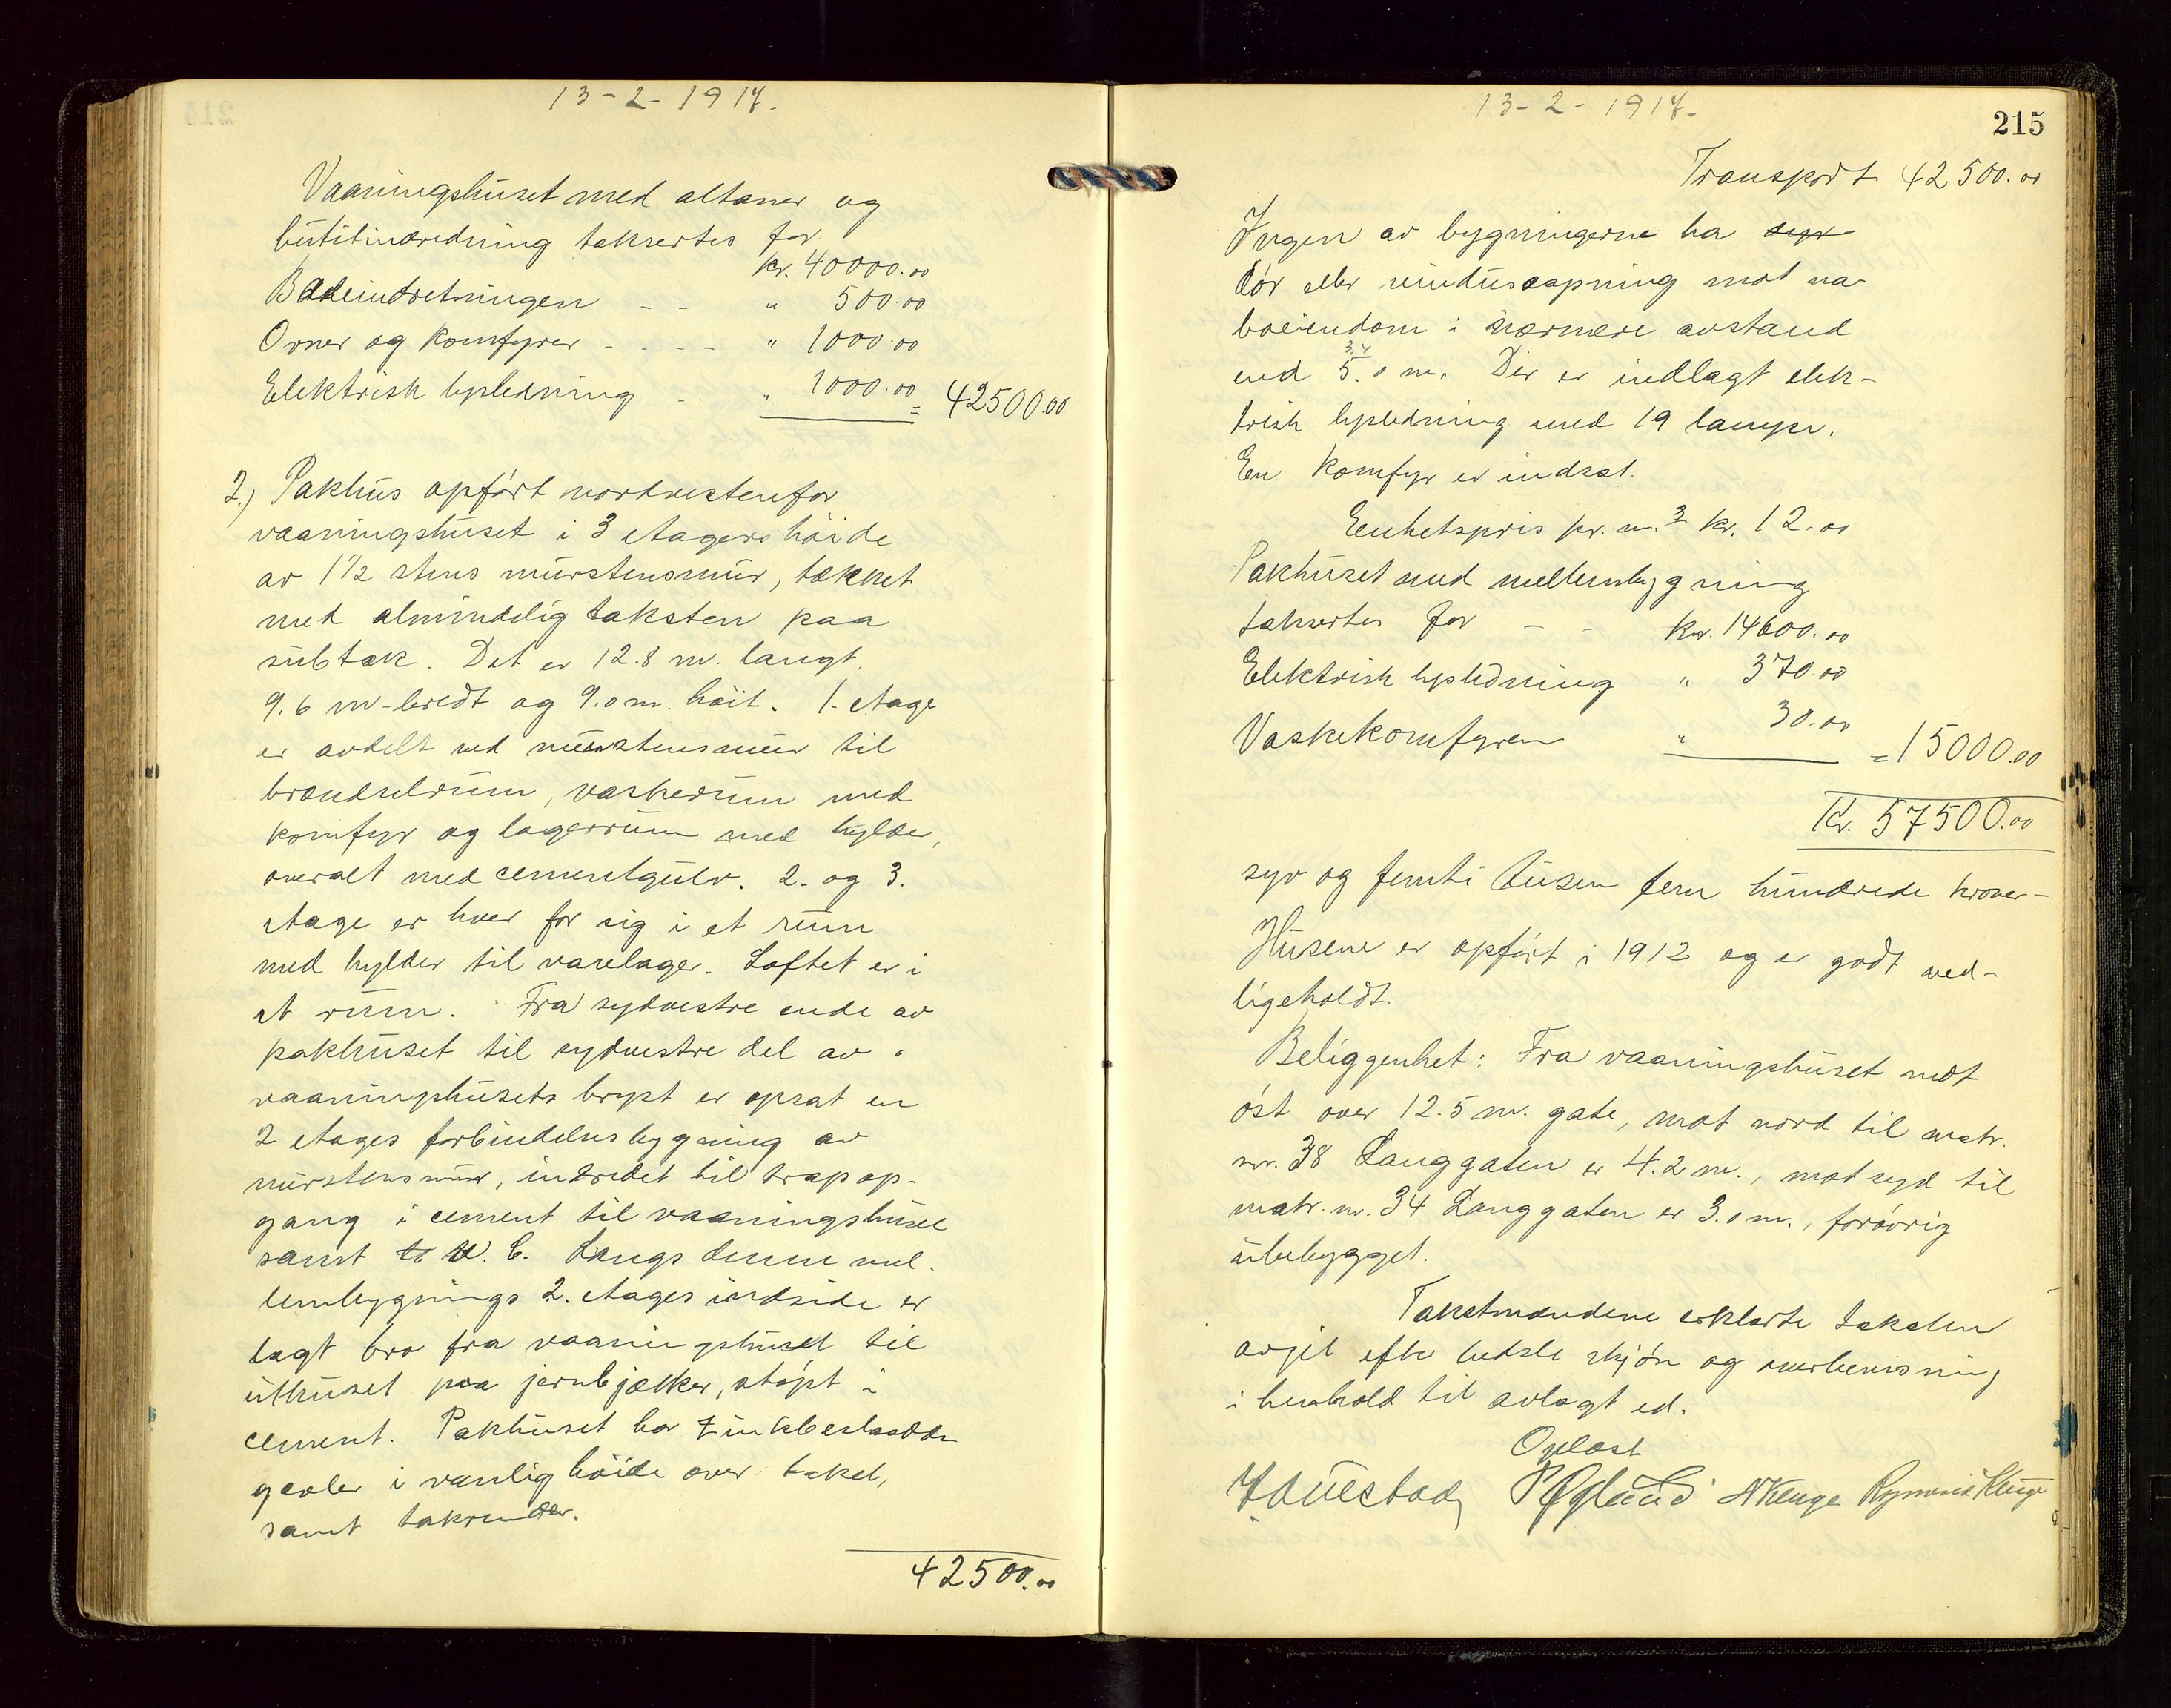 13-2-1917.
Vaaningshuset med altaner og
butikindredning taksertes for
kr. 40000.00
Badeindretningen - - " 500.00
Ovner og komfyrer - - - - " 1000.00
Elektrisk lysledning - - " 1000.00 = 42500.00
2.) Pakhus opført nordvestenfor
vaaningshuset i 3 etagers høide
av 1 1/2 stens murstensmur, tækket
med almindelig taksten paa
subtak. Det er 12.8 m. langt,
9.6 m bredt og 9.0 m. høit. 1. etage
er avdelt med murstensmur til
brændselrum, vaskerum med
komfyr og lagerrum med hylder,
overalt med cementgulv. 2. og 3.
etage er hver for sig i et rum
med hylder til varelager. Loftet er i
et rum. Fra sydvestre ende av
pakhuset til sydvestre del av
vaaningshusets bryst er opsat en
2 etages forbindelsesbygning av
murstensmur, indredet til trapop-
gang i cement til vaaningshuset
samt to W.C. Langs denne mel-
lembygnings 2. etages indside er
lagt bro fra vaaningshuset til
uthuset paa jernbjælker, støpt i
cement. Pakhuset har zinkbeslaadde
gavler i vanlig høide over taket,
samt takrender.
42500.00
13-2-1917.
215
Transport 42500.00
Ingen av bygningerne ha
dør eller vindusaapning mot na-
boeiendom i nærmere avstand
end 5.0 m. Der er indlagt elek-
trisk lysledning med 19 lamper.
En komfyr er indsat.
Eenhetspris pr. m.3 kr. 12.00
Pakhuset med mellembygning
taksertes for - - kr. 14600.00
Elektrisk lysledning " 370.00
Vaskekomfyren " 30.00 = 15000.00
Kr. 57500.00
syv og femti tusen fem hundrede kroner-
Husene er opført i 1912 og er godt ved-
ligeholdt.
Beliggenhet: Fra vaaningshuset mot
øst over 12.5 m. gate, mot nord til matr.
nr. 38 Langgaten er 4.2 m., mot syd til
matr. nr. 34 Langgaten er 3.0 m., forøvrig
ubebygget.
Takstmændene erklærte taksten
avgit efter bedste skjøn og overbevisning
i henhold til avlagt ed.
Oplæst